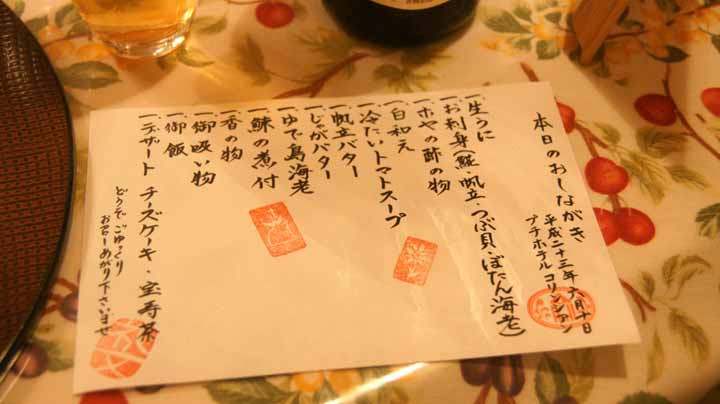 本日のおしながき
平成二十三年六月十日
プチホテルコリンシアン
一、生うに
一、お刺身(鮃・帆立・つぶ貝・ぼたん海老)
一、ホヤの酢の物
一、白和え
一、冷たいトマトスープ
一、帆立バター
一、じゃがバター
一、ゆで島海老
一、鰊の煮付
一、香の物
一、御吸い物
一、御飯
一、デザート チーズケーキ・宝寿茶
どうぞごゆっくり
お召しあがり下さいませ